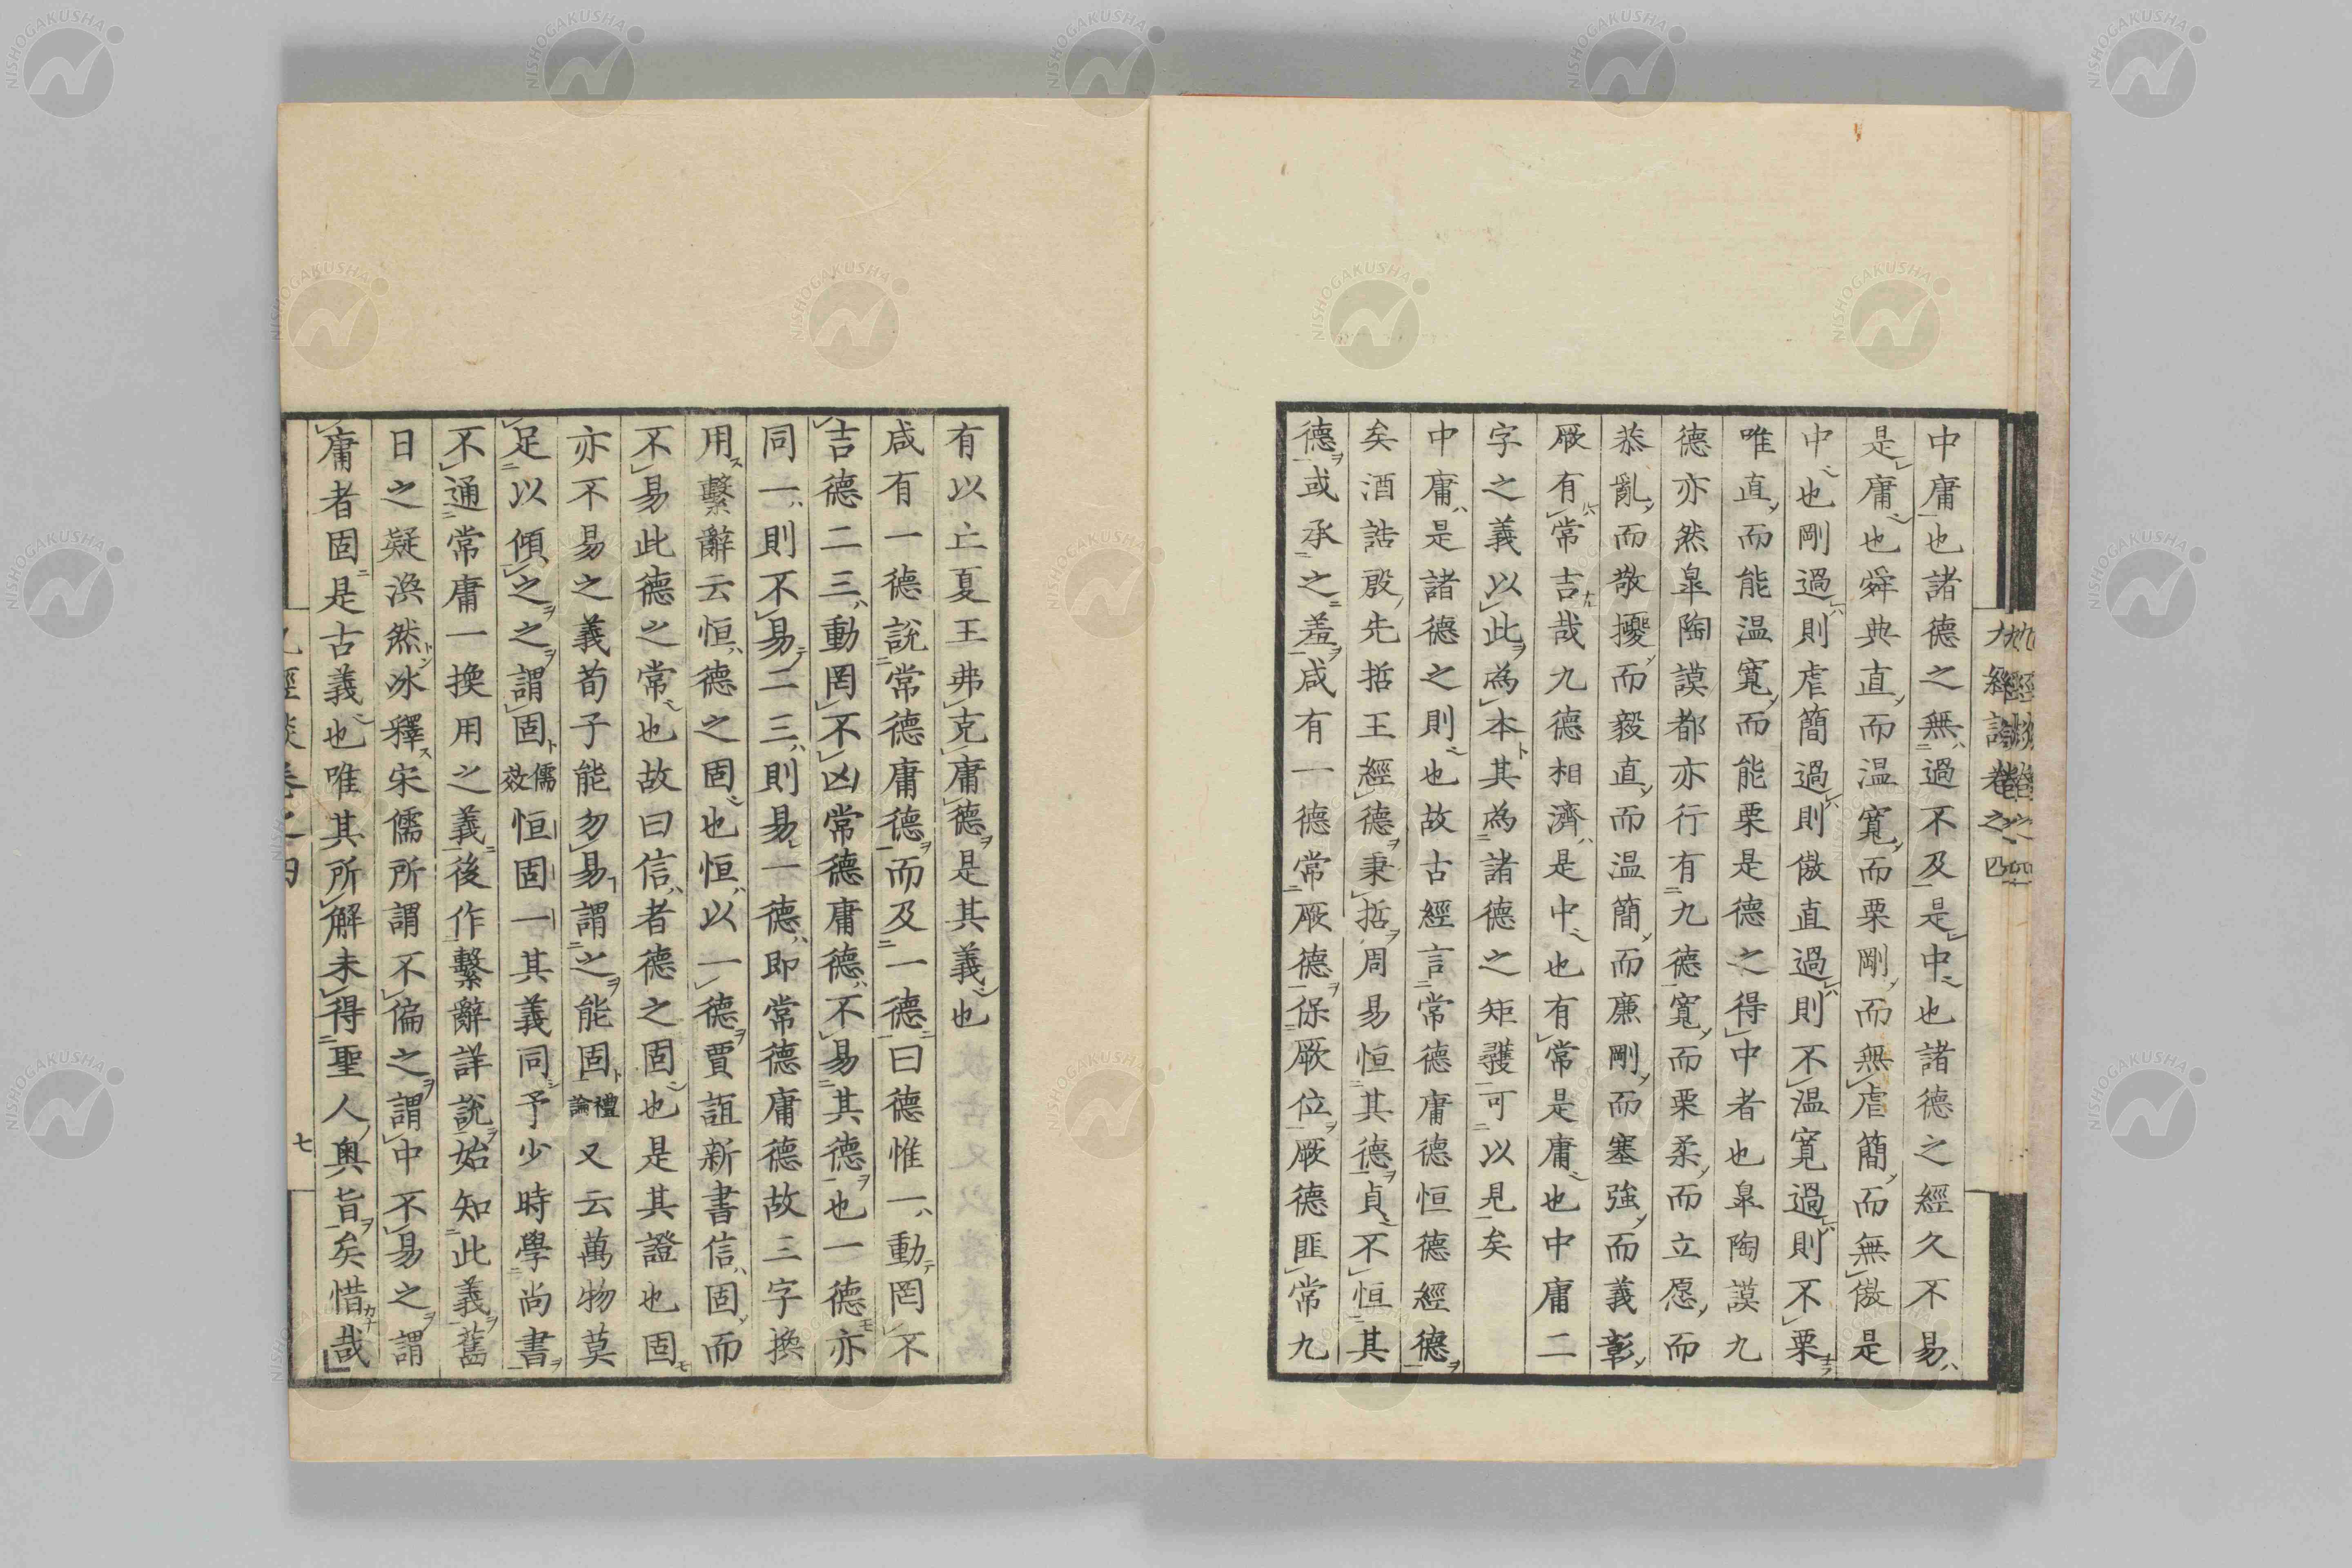 中庸也諸德之無過不及是中也諸德之經久不易
是庸也舜典直而温寬而栗剛而無虐簡而無傲是
中也剛過則虐簡過則傲直過則不温寬過則不栗
唯直而能温寬而能栗是德之得中者也皐陶謨九
德亦然皐陶謨都亦行有九德寬而栗柔而立愿而
恭亂而敬擾而毅直而温簡而廉剛而塞強而義彰
厥有常吉哉九德相濟是中也有常是庸也中庸二
字之義以此為本其為諸德之矩矱可以見矣
中庸是諸德之則也故古經言常德庸德恒德經德
矣酒誥殷先哲王經德秉哲周易恒其德貞不恒其
德或承之羞咸有一德常厥德保厥位厥德匪常九
有以亡夏王弗克庸德是其義也
咸有一德說常德庸德而及一德曰德惟一動罔不
吉德二三動罔不凶常德庸德不易其德也一德亦
同一則不易二三則易一德即常德庸德故三字換
用繫辭云恒德之固也恒以一德賈誼新書信固而
不易此德之常也故曰信者德之固也是其證也固
亦不易之義荀子能勿易謂之能固禮論又云萬物莫
足以傾之之謂固儒效恒固一其義同予少時學尚書
不通常庸一換用之義後作繫辭詳說始知此義舊
日之疑渙然冰釋宋儒所謂不偏之謂中不易之謂
庸者固是古義也唯其所解未得聖人奧旨矣惜哉
九經談卷之四
七
NISHOGAKUSHA